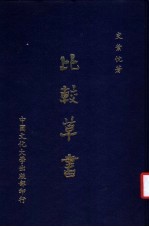 史紫忱著
比較草書
中國文化大學出版部印行